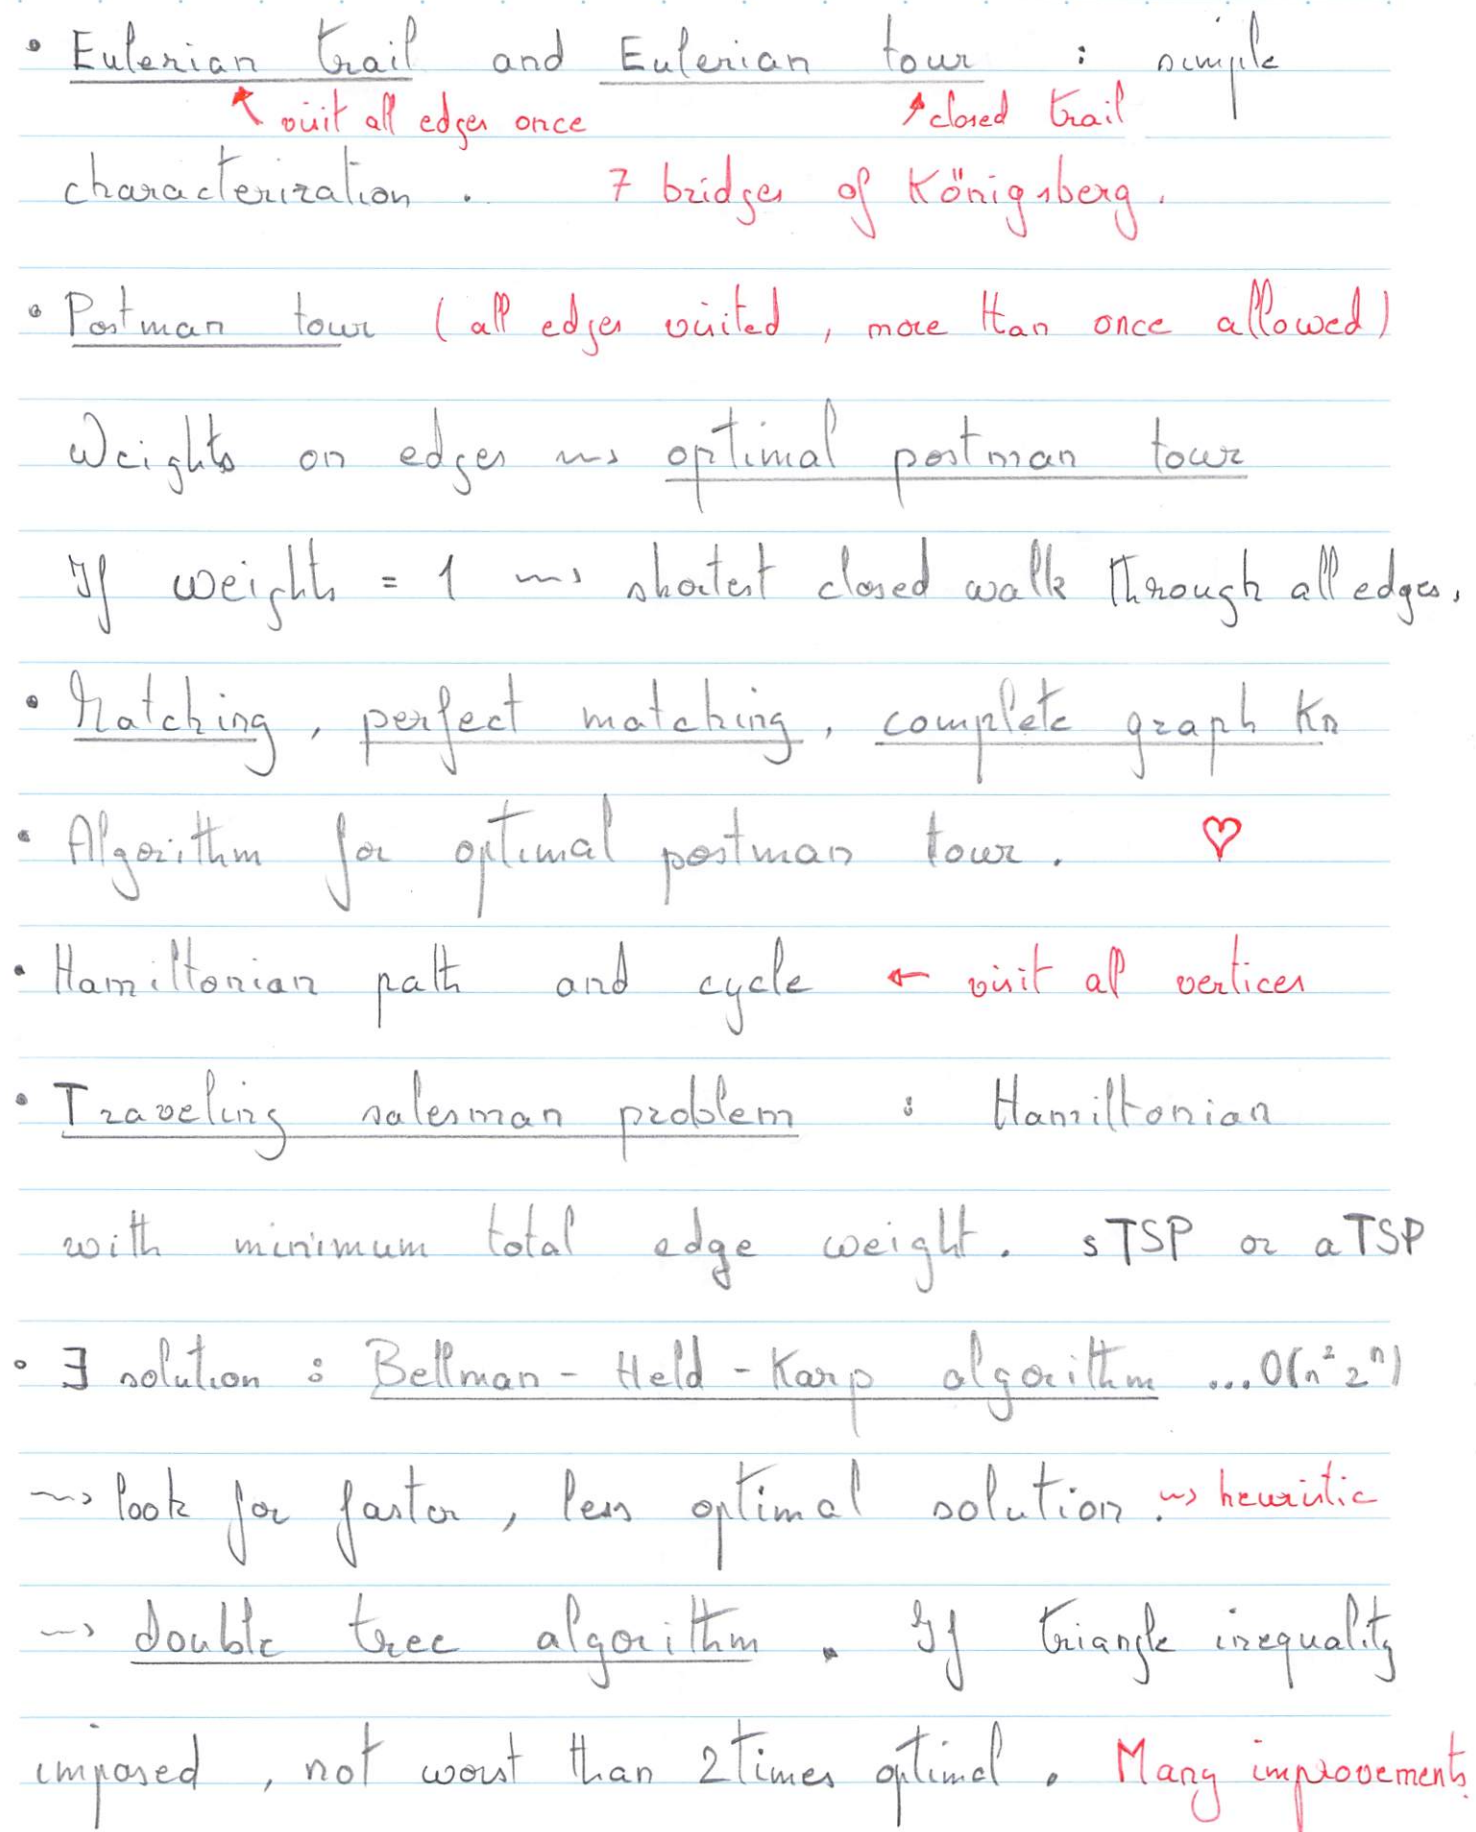 • Eulerian trail and Eulerian tour : simple
↖ visit all edges once ↗ closed trail
characterization. 7 bridges of Königsberg.
• Postman tour (all edges visited, more than once allowed)
Weights on edges ⇝ optimal postman tour
If weights = 1 ⇝ shortest closed walk through all edges.
• Matching, perfect matching, complete graph Kn
• Algorithm for optimal postman tour. ♡
• Hamiltonian path and cycle ← visit all vertices
• Traveling salesman problem : Hamiltonian
with minimum total edge weight. sTSP or aTSP
• ∃ solution : Bellman-Held-Karp algorithm ...O(n²2ⁿ)
⇝ look for faster, less optimal solution. ⇝ heuristic
⇝ double tree algorithm. If triangle inequality
imposed, not worst than 2 times optimal. Many improvements.